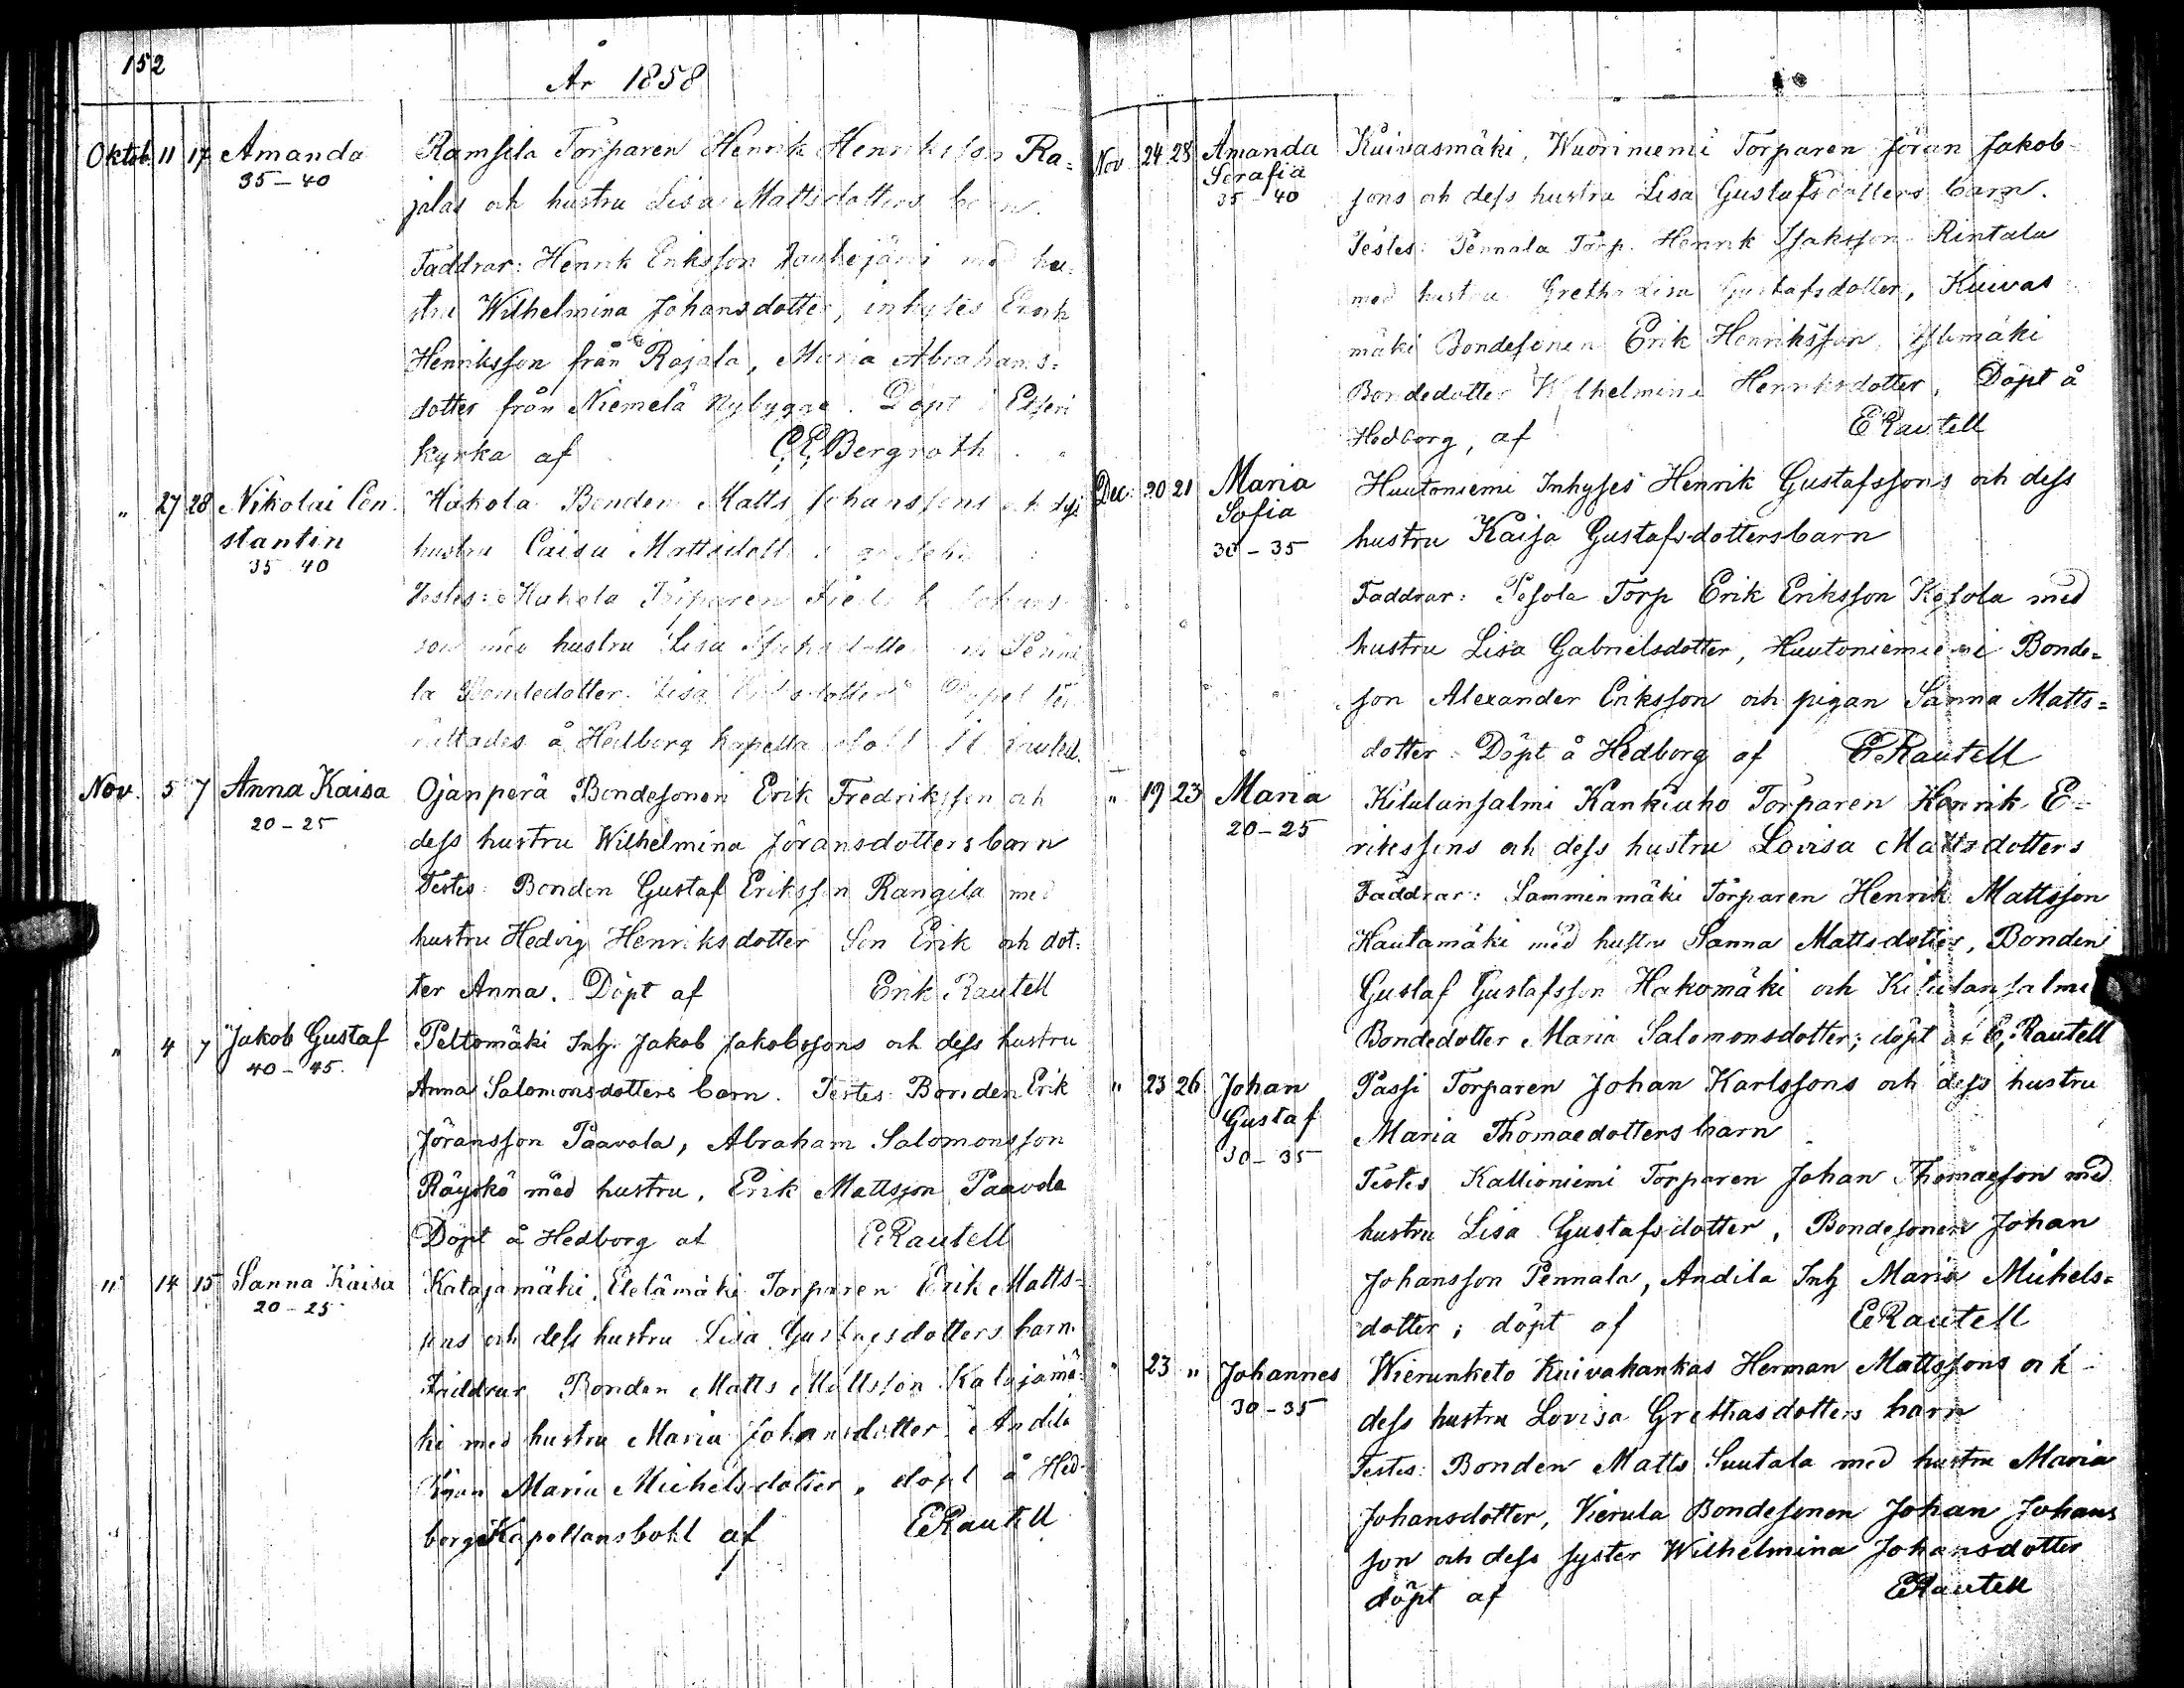 152
År 1858
Oktob. 11 17 Amanda
35–40
Ramsila Torparen Henrik Henriksson Ra=
jalas och hustru Lisa Mattsdotters barn.
Faddrar: Henrik Eriksson med hu=
stru Wilhelmina Johansdotter, inhyses Erik
Henriksson från Rajala, Maria Abrahams=
dotter från Niemelä Nybygge. Döpt i Etseri
kyrka af C. E. Bergroth
" 27 28 Nikolai Con
stantin
35 40
Hakola Bonden Matts Johanssons och dess
hustru Caisa Mattsdott
Testes: Hakola Torparen Johans
son med hustru Lisa Penna
la Bondedotter Lisa
rättades å Hedborg
Nov. 5 7 Anna Kaisa
20–25
Ojanperä Bondesonen Erik Fredriksson och
dess hustru Wilhelmina Jöransdotters barn
Testes: Bonden Gustaf Eriksson Rangila med
hustru Hedvig Henriksdotter Son Erik och dot=
ter Anna. Döpt af Erik Rautell
" 4 7 Jakob Gustaf
40–45.
Peltomäki Inh. Jakob Jakobssons och dess hustru
Anna Salomonsdotters barn. Testes: Bonden Erik
Jöransson Paavola, Abraham Salomonsson
Räyskö med hustru, Erik Mattsson Paavola
Döpt å Hedborg af E. Rautell
" 14 15 Sanna Kaisa
20–25
Katajamäki, Etelämäki Torparen Erik Matts=
sons och dess hustru Lisa Gustafsdotters barn.
Faddrar Bonden Matts Mattsson Katajamä=
ki med hustru Maria Johansdotter, Andila
Pigan Maria Michelsdotter, döpt å Hed=
borgs Kapellansbohl af E. Rautell
Nov 24 28 Amanda
Serafia
35–40
Kuivasmäki, Wuoriniemi Torparen Jöran Jakob=
sons och dess hustru Lisa Gustafsdotters barn.
Testes: Pennala Torp. Henrik Isaksson Rintala
med hustru Gretha Lisa Gustafsdotter, Kuivas
mäki Bondesonen Erik Henriksson,
Bondedotter Wilhelmina Henriksdotter. Döpt å
Hedborg, af E. Rautell
Dec. 20 21 Maria
Sofia
30–35
Huutoniemi Inhyses Henrik Gustafssons och dess
hustru Kaisa Gustafsdotters barn
Faddrar: Pesola Torp Erik Eriksson Kesola med
hustru Lisa Gabrielsdotter, Huutoniemi Bonde=
son Alexander Eriksson och pigan Sanna Matts=
dotter. Döpt å Hedborg af E. Rautell
" 19 23 Maria
20–25
Kitulansalmi Kankiaho Torparen Henrik E=
rikssons och dess hustru Lovisa Mattsdotters
Faddrar: Lamminmäki Torparen Henrik Mattsson
Hautamäki med hustru Sanna Mattsdotter, Bonden
Gustaf Gustafsson Hakomäki och Kitulansalmi
Bondedotter Maria Salomonsdotter; döpt af E. Rautell
" 23 26 Johan
Gustaf
30–35
Passi Torparen Johan Karlssons och dess hustru
Maria Thomaedotters barn
Testes Kallioniemi Torparen Johan Thomaeson med
hustru Lisa Gustafsdotter, Bondesonen Johan
Johansson Pennala, Andila Inh Maria Michels=
dotter; döpt af E. Rautell
" 23 " Johannes
30–35
Wierunketo Kuivakankas Herman Mattssons och
dess hustru Lovisa Grethasdotters barn
Testes: Bonden Matts Suutala med hustru Maria
Johansdotter, Vierula Bondesonen Johan Johans
son och dess syster Wilhelmina Johansdotter
döpt af E. Rautell